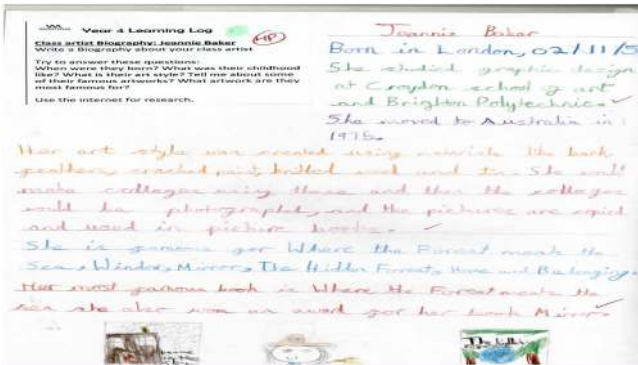 Year 4 Learning Log
HP
Class artist Biography: Jeannie Baker
Write a Biography about your class artist
Try to answer these questions:
When were they born? What was their childhood
like? What is their art style? Tell me about some
of their famous artworks? What artwork are they
most famous for?
Use the internet for research.
Jeannie Baker
Born in London, 02/11/5
She studied graphic design
at Croydon school of art
and Brighton Polytechnic.
She moved to Australia in
197
Her art style was created using materials like bark
feathers, cracked paint, knitted wool and She
make collages using these and then the collages
be photographed, and the pictures are copied
and used in picture books.
She is famous for Where the Forest meets the
Sea, Window, Mirror, The Hidden Forest, Home and Belonging.
Her most famous book is Where the Forest meets the
sea she also won an award for her book Mirror.